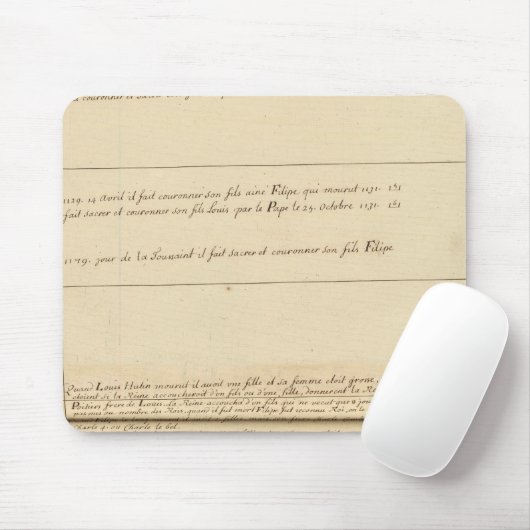 a couronner et
1129. 14 Avril il fait couronner son fils ainé Filipe qui mourut 1131. 1131
fait sacrer et couronner son fils Louis par le Pape le 25. Octobre 1131.
1179. jour de la Toussaint il fait sacrer et couronner son fils Filipe
Quand Louis Hutin mourut il avoit vne fille et sa femme etoit grosse,
etoient si la Reine accoucheroit d'un fils ou d'une fille, donnerent la Re
Poitiers frere de Louis. la Reine accoucha d'un fils qui ne vecut que 8 jou
pas mis au nombre des Rois, quand il fut mort Filipe fut reconnu Roi,
Charle 4. ou Charle le bel.